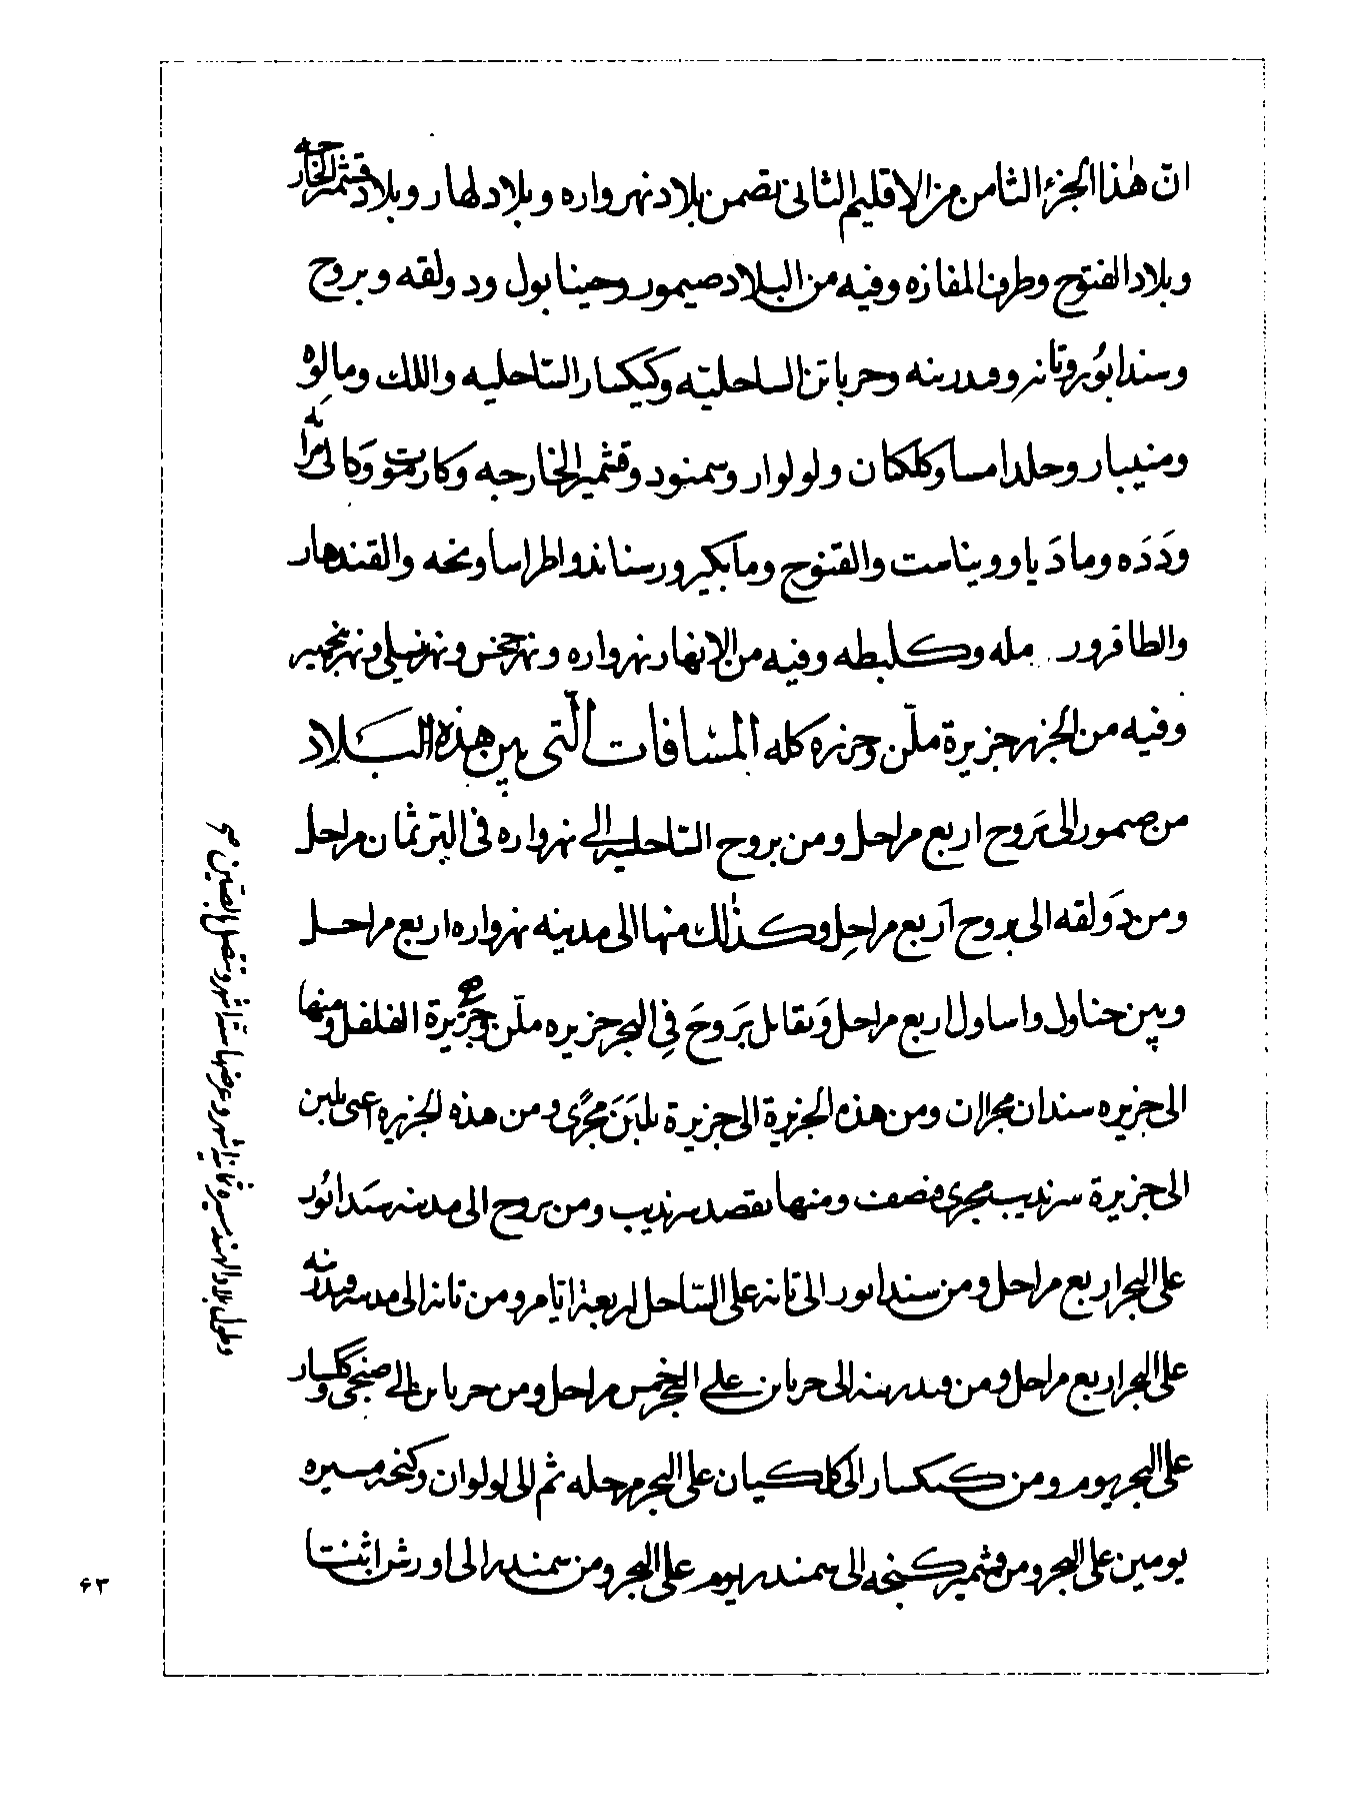 انّ هٰذا الجزء الثامن من الاقليم الثانى تضمن بلاد نهرواره وبلاد لهار وبلاد قشمير الخارجه
وبلاد القنوج وطرف المفازه وفيه من البلاد صيمور وحينابول ودولقه وبروح
وسندابُور وتانه وفندرينه وحرباتن الساحليّه وكيكسار السّاحليه واللك ومالوه
ومنيبار وحلدامسا وكلكان ولولوار وسمنود وقشمير الخارجه وكارموت وكالى مراه
ودَدَه ومادَيار وويناست والقنوج ومابكير ورسناند واطراسا ونحه والقندهار
والطاقرور مله وكلبطه وفيه من الانهار نهرواره ونهر جخس ونهر نيلى ونهر بخمير
وفيه من الجزر جزيرة ملّن وجزيره كله المسافات الّتى بين هذه البَلاد
من صيمور الى بَروح اربع مراحل ومن بروح السّاحليه الى نهرواره فى البرّ ثمان مراحل
ومن دَولقه الى بروح اَربع مراحِل وكذٰلك منها الى مدينه نهرواره اربع مراحل
وبين حناول واساول اربع مراحل وَتقابل بَروحَ فِى البحر جزيره ملّن وجَزيرة الفلفل ومنها
الى جزيره سندان مجران ومن هذه الجزيرة الى جزيرة بلبَنَ مجرًى ومن هذه الجزيره اعنى بلبن
الى جزيرة سرنديب مجرى ونصف ومنها تقصد سرنديب ومن بروح الى مدينه سَندابُور
على البحر اربع مراحل ومن سندابور الى تانه على السّاحل اربعة ايّام ومن تانه الى مدينه فندرينه
على البحر اربع مراحل ومن فندرينه الى حرباتن على البحر خمس مراحل ومن حرباتن الى صنجى وكلسار
على البحر يوم ومن كيكسار الى كلكيان على البحر مرحله ثم الى لولوان وكنجه مسيره
يومين على البحر ومن قشمير كنجه الى سمندر يوم على البحر ومن سمندر الى اورشن اثنتا
وطول بلاد الهند مسيرة ثمانية اشهر وعرضها ستّة اشهر وتتصل بالصّين
۶۳